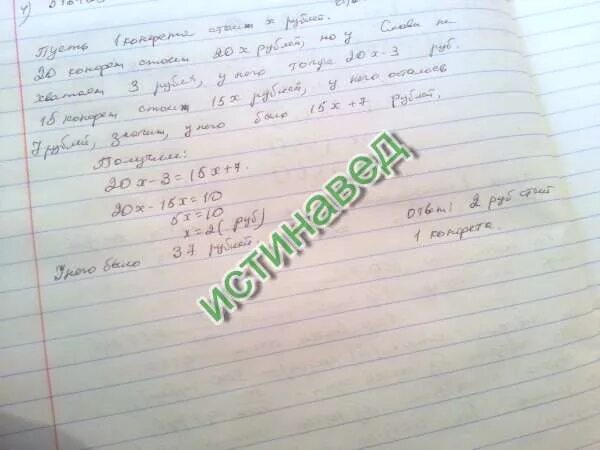 Пусть 1 конфета стоит x рублей.
20 конфет стоят 20x рублей, но у Славы не
хватает 3 рубля, у него тогда 20x-3 руб.
15 конфет стоят 15x рублей, у него осталось
7 рублей, значит, у него было 15x+7 рублей,
Получим:
20x-3=15x+7.
20x-15x=10
5x=10
x=2( руб)
У него было 37 рублей
Ответ: 2 руб стоит
1 конфета.
ИСТИНАВЕД